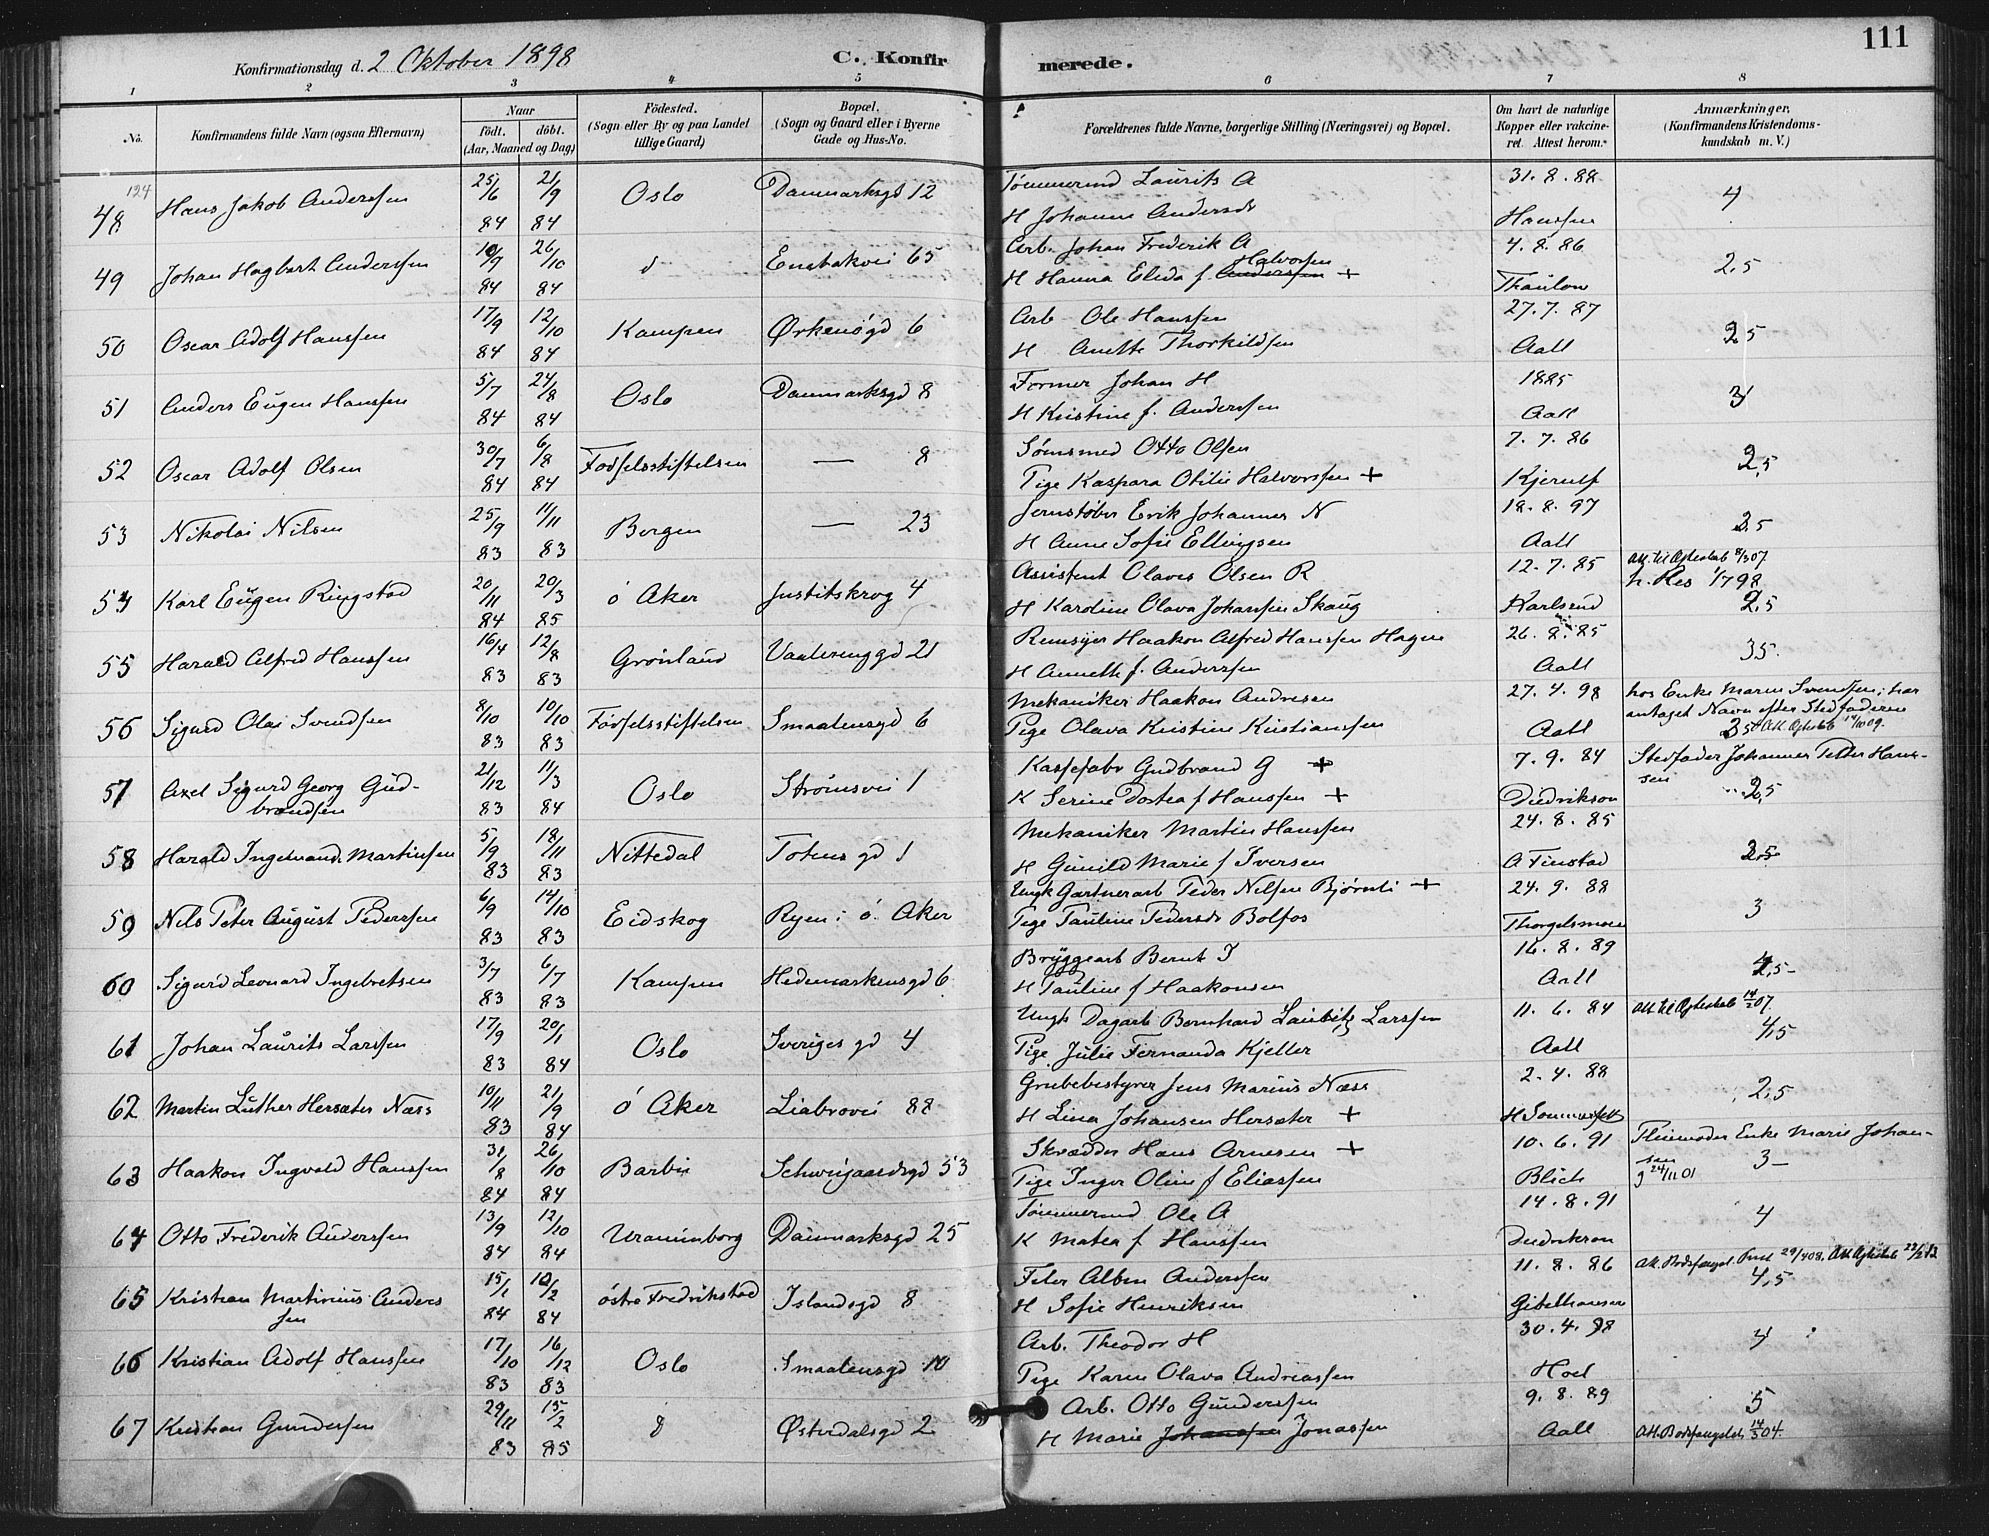 111
Konfirmationsdag d. 2 Oktober 1898
C. Konfirmerede.
1 2 3 4 5 6 7 8
No.
Konfirmandens fulde Navn (ogsaa Efternavn)
Naar
födt. döbt.
(Aar, Maaned og Dag)
Födested.
(Sogn eller By og paa Landet
tillige Gaard)
Bopæl.
(Sogn og Gaard eller i Byerne
Gade og Hus-No.
Forældrenes fulde Navne, borgerlige Stilling (Næringsvei) og Bopæl.
Om havt de naturlige
Kopper eller vakcine-
ret. Attest herom.
Anmærkninger.
(Konfirmandens Kristendoms-
kundskab m. V.)
124
48 Hans Jakob Anderssen 25/6 84 21/9 84 Oslo Danmarksgd 12
Tømmermd Laurits A 31.8.88
H Johanne Andersdr Hanssen 4
49 Johan Hagbart Anderssen 10/9 84 26/10 84 d Enebakvei 65
Arb. Johan Frederik A 4.8.86
H Hanna Elida f. Anderssen Halvorsen + Thaulow 2,5
50 Oscar Adolf Hanssen 17/9 84 12/10 84 Kampen Ørkenögd 6
Arb Ole Hanssen 27.7.87
H Anette Thorkildsen Aall 2,5
51 Anders Eugen Hanssen 5/7 84 24/8 84 Oslo Danmarksgd 8
Former Johan H 1885
H Kristine f. Anderssen Aall 3
52 Oscar Adolf Olsen 30/7 84 6/8 84 Fødselsstiftelsen — 8
Sømsmed Otto Olsen 7.7.86
Pige Kaspara Otilie Halvorssen + Kjerulf 2,5
53 Nikolai Nilsen 25/9 83 11/11 83 Bergen — 23
Jernstøber Erik Johannes N 18.8.97
H Anne Sofie Ellingsen Aall 2,5
54 Karl Eugen Ringstad 20/11 84 20/3 85 ö Aker Justitskrog 4
Assistent Olaves Olsen R 12.7.85 Att. til Ægteskab 8/3 07
H Karoline Olava Johanssen Skaug Karlsrud 2,5
55 Harald Alfred Hanssen 16/4 83 12/8 83 Grønland Vaalerenggd 21
Remsyer Haakon Alfred Hanssen Hagen 26.8.85
H Annette f. Anderssen Aall 3,5
56 Sigurd Olai Svendsen 8/10 83 10/10 83 Fødselsstiftelsen Smaalensgd 6
Mekaniker Haakon Andresen 27.4.98 hos Enke Maren Svendsen; har
antaget Navn efter Stedfaderen
Pige Olava Kristine Kristiansen Aall 3,5 Att. Ægteskab 14/10 09.
57 Axel Sigurd Georg Gud-
brandsen 21/12 83 11/3 84 Oslo Strömsvei 1
Kassefabr Gudbrand G + 7.9.84 Stedfader Johannes Petter Hans-
sen
K Serine Dortea f Hanssen + Diedrikson 2,5
58 Harald Ingemand Martinsen 5/9 83 18/11 83 Nittedal Totensgd 1
Mekaniker Martin Hanssen 24.8.85
H Gunild Marie f Iversen O Finstad 2,5
59 Nils Peter August Pederssen 6/9 83 14/10 83 Eidskog Ryen i ö. Aker
Ungk Gartnerarb Peder Nilsen Bjørnli + 24.9.88
Pige Pauline Pedersdr Bolfos Thorgelsmoen 3
60 Sigurd Leonard Ingebretsen 3/7 83 6/7 83 Kampen Hedemarkensgd 6
Bryggearb Bernt I 16.8.89
H Pauline f Haakonsen Aall 2,5
61 Johan Laurits Larssen 17/9 83 20/1 84 Oslo Sveriges gd 4
Ungk Dagarb Bernhard Laubitz Larssen 11.6.84 Att. til Ægteskab 14/2 07
Pige Julie Fernanda Kjeller Aall 4,5
62 Martin Luther Hersæter Næss 10/11 83 21/9 84 ö Aker Liabrovei 88
Grubebestyrer Jens Marius Næss 2.4.88
H Lina Johansen Hersæter + H Sommerfelt 2,5
63 Haakon Ingvald Hanssen 31/8 84 26/10 84 Barbu Schweigaardsgd 53
Skrædder Hans Arnesen + 10.6.91 Pleiemoder Enke Marie Johan-
sen
Pige Inger Oline f Eliassen Blich 3 24/11 01
64 Otto Frederik Anderssen 13/9 84 12/10 84 Uranienborg Danmarksgd 25
Tømmermd Ole A 14.8.91
K Matea f Hanssen Diedrikson 4
65 Kristian Martinius Anders
sen 15/1 84 10/2 84 østre Fredrikstad Islandsgd 8
Feler Albin Anderssen 11.8.86 Att. Bodsfængsl. 29/4 08. Att Ægteskab 22/2 12
H Sofie Henriksen Gibelhausen 4,5
66 Kristian Adolf Hanssen 17/10 83 16/12 83 Oslo Smaalensgd 10
Arb. Theodor H 30.4.98
Pige Karen Olava Andreassen Hoel 4
67 Kristian Gundersen 29/11 83 15/2 85 d Østerdalsgd 2
Arb. Otto Gunderssen 9.8.89
H Marie Johanssen Jonassen Aall 5
Att. Bodsfængslet 14/3 04.